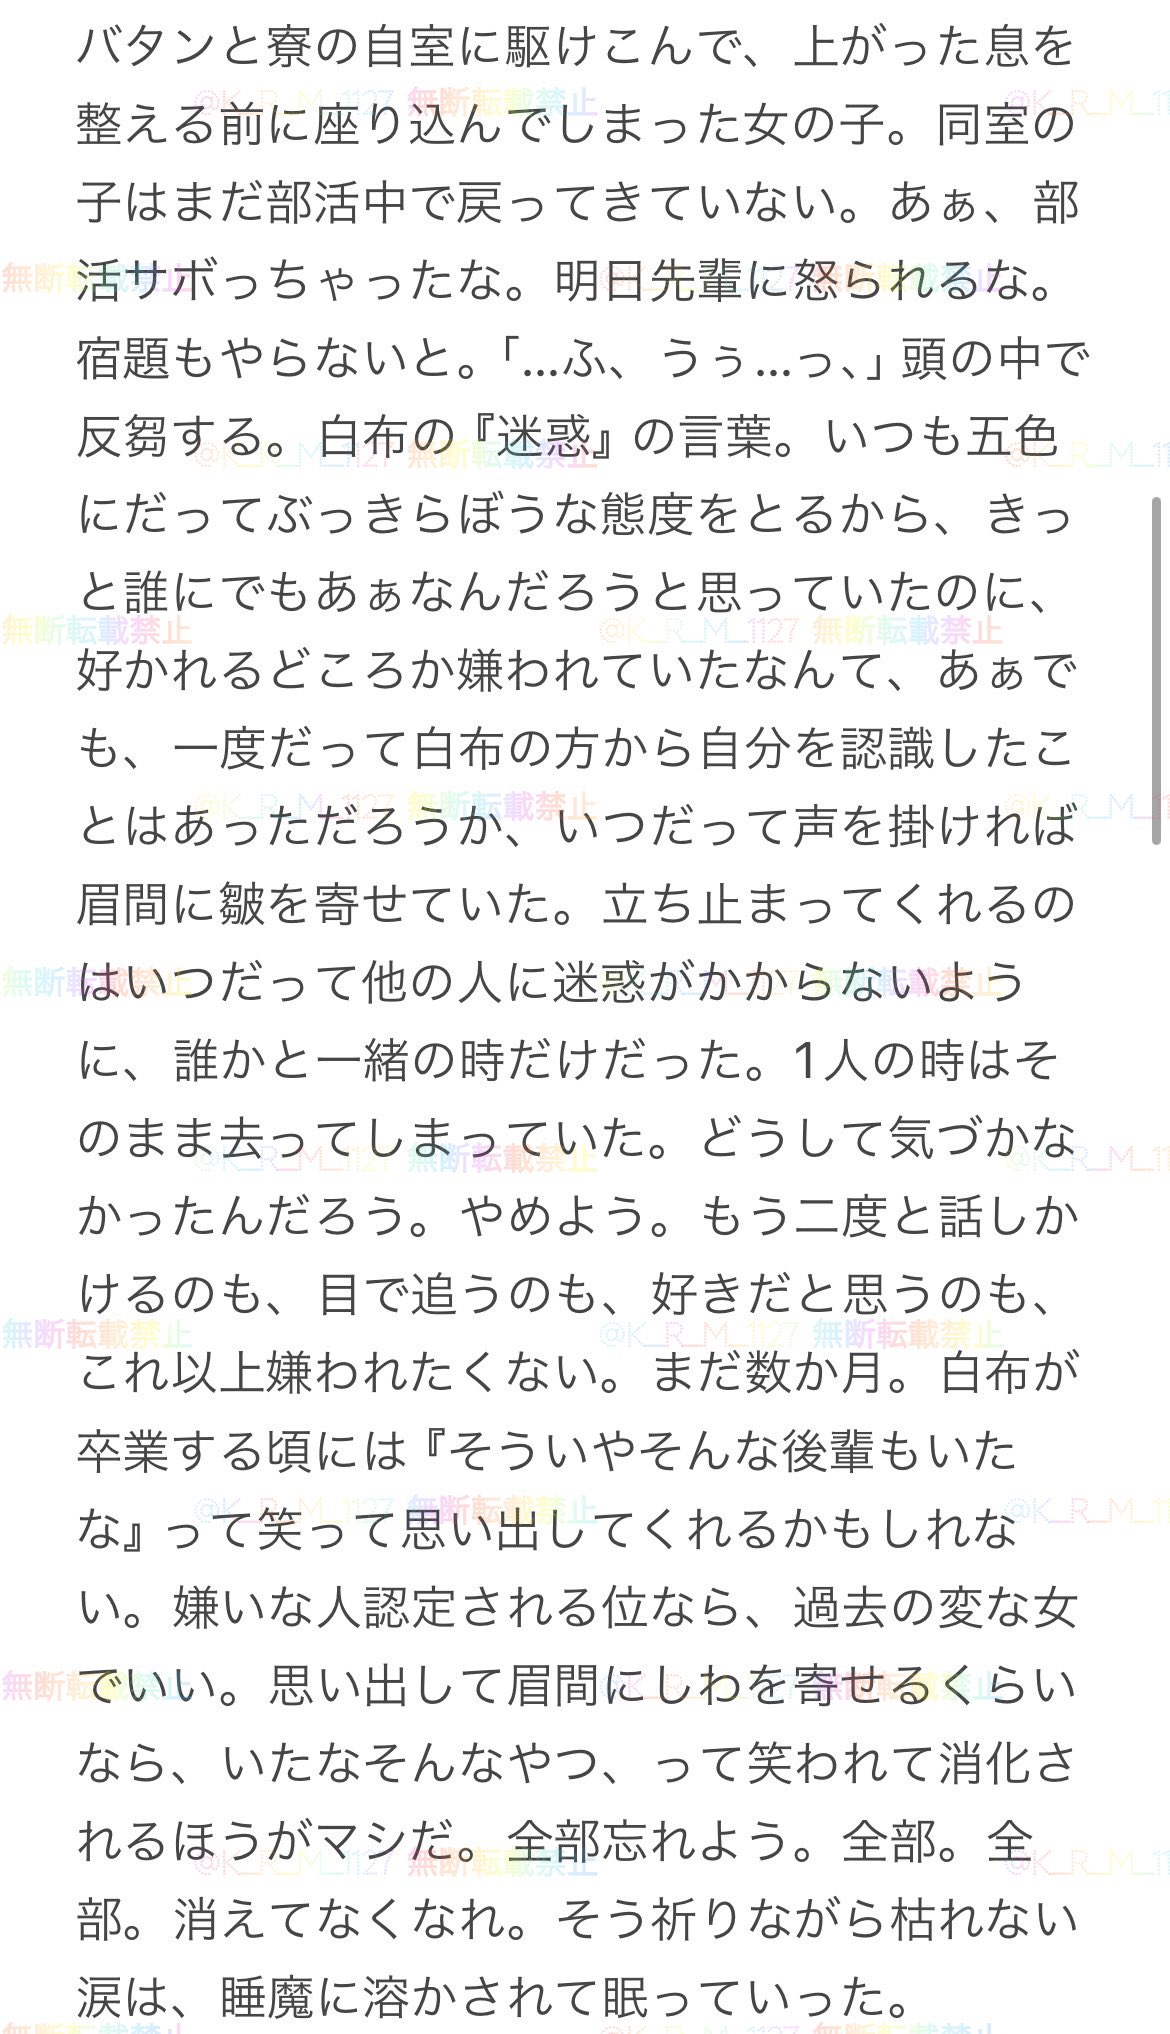 バタンと寮の自室に駆けこんで、上がった息を
整える前に座り込んでしまった女の子。同室の
子はまだ部活中で戻ってきていない。あぁ、部
活サボっちゃったな。明日先輩に怒られるな。
宿題もやらないと。「…ふ、うぅ…っ、」頭の中で
反芻する。白布の『迷惑』の言葉。いつも五色
にだってぶっきらぼうな態度をとるから、きっ
と誰にでもあぁなんだろうと思っていたのに、
好かれるどころか嫌われていたなんて、あぁで
も、一度だって白布の方から自分を認識したこ
とはあっただろうか、いつだって声を掛ければ
眉間に皺を寄せていた。立ち止まってくれるの
はいつだって他の人に迷惑がかからないよう
に、誰かと一緒の時だけだった。1人の時はそ
のまま去ってしまっていた。どうして気づかな
かったんだろう。やめよう。もう二度と話しか
けるのも、目で追うのも、好きだと思うのも、
これ以上嫌われたくない。まだ数か月。白布が
卒業する頃には『そういやそんな後輩もいた
な』って笑って思い出してくれるかもしれな
い。嫌いな人認定される位なら、過去の変な女
でいい。思い出して眉間にしわを寄せるくらい
なら、いたなそんなやつ、って笑われて消化さ
れるほうがマシだ。全部忘れよう。全部。全
部。消えてなくなれ。そう祈りながら枯れない
涙は、睡魔に溶かされて眠っていった。
@K_R_M_1127 無断転載禁止